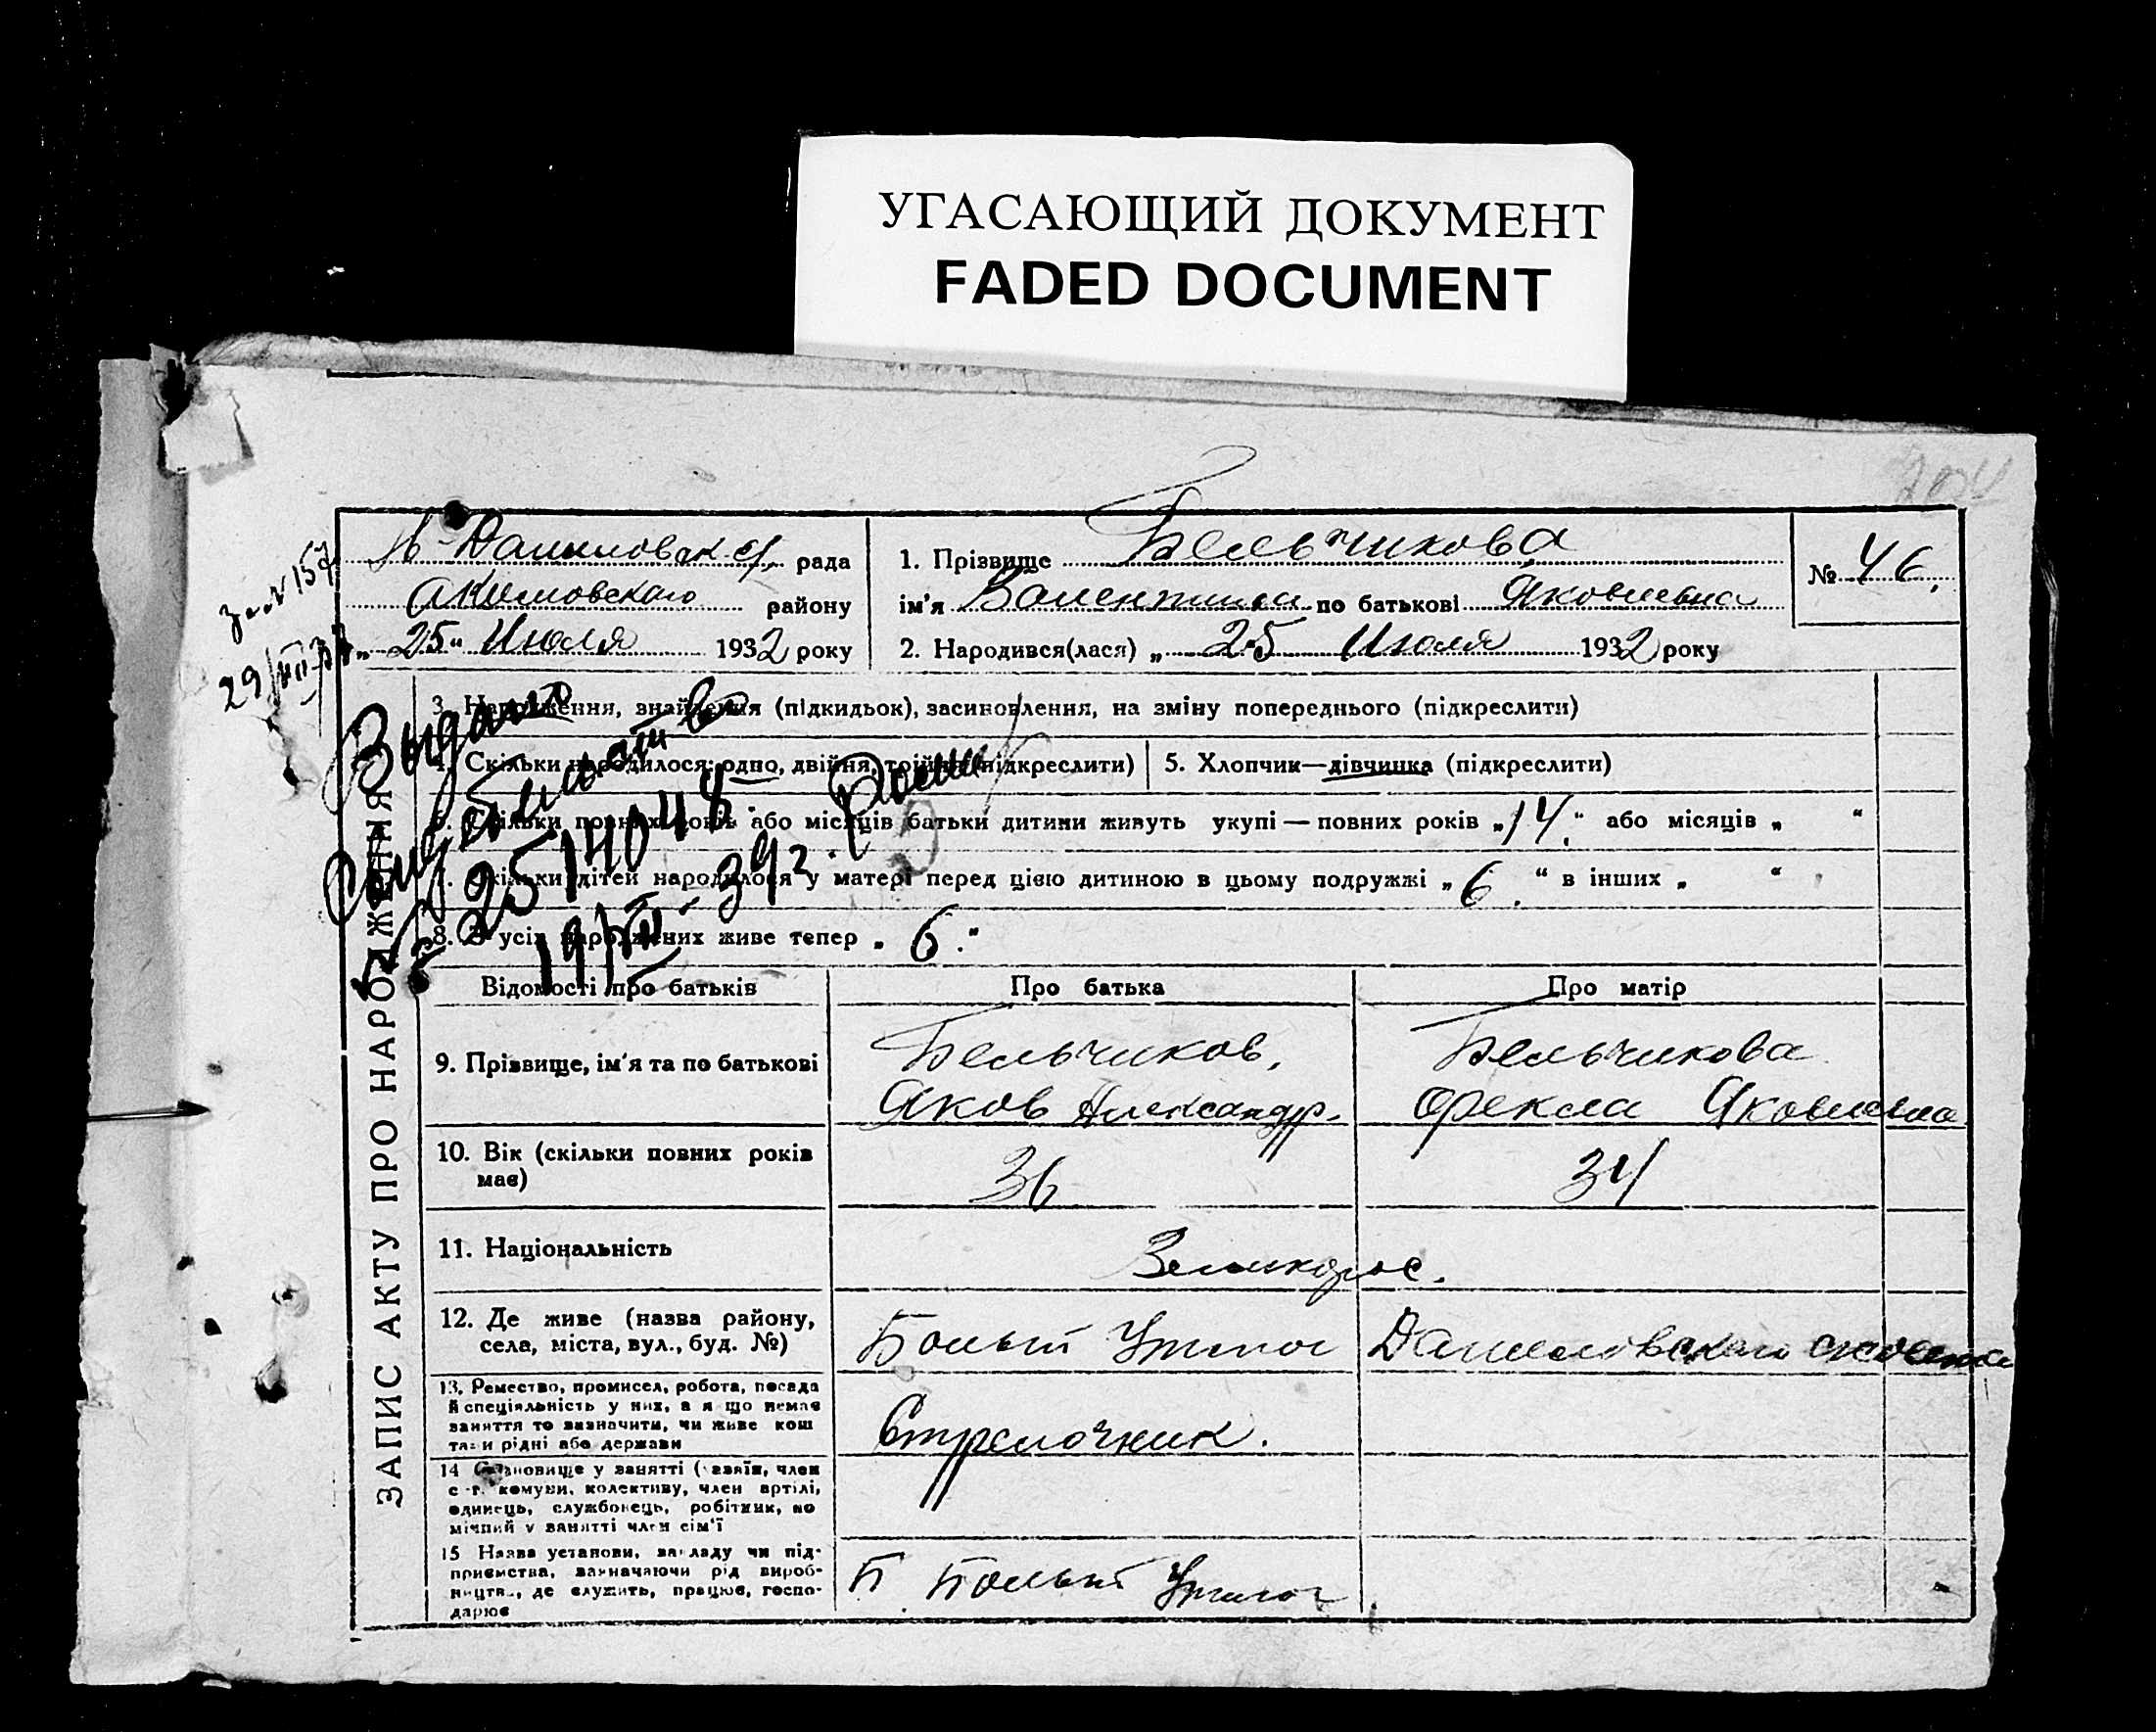 УГАСАЮЩИЙ ДОКУМЕНТ
FADED DOCUMENT
204
рада
Акимовского району
„25“ Июля 1932 року
1. Прізвище Бельчикова
ім'я Валентина по батькові Яковлевна
2. Народився(лася) „25 Июля 1932 року
№ 46.
ЗАПИС АКТУ ПРО НАРОДЖЕННЯ
3. Народження, знайдення (підкидьок), засиновлення, на зміну попереднього (підкреслити)
4. Скільки народилося: одно, двійня, трійня (підкреслити)
5. Хлопчик—дівчинка (підкреслити)
6. Скільки повних років або місяців батьки дитини живуть укупі — повних років „14.“ або місяців „ “
7. Скільки дітей народилося у матері перед цією дитиною в цьому подружжі „6.“ в інших „ “
8. З усіх народжених живе тепер „6.“
Выдано
19/III-39г.
Відомості про батьків
Про батька
Про матір
9. Прізвище, ім'я та по батькові
Бельчиков,
Яков Александр.
Бельчикова
Фекла Яковлевна
10. Вік (скільки повних років
має)
36
34
11. Національність
Великорос.
12. Де живе (назва району,
села, міста, вул., буд. №)
Больш Утлюг
Даниловского
13. Ремество, промисел, робота, посада
й спеціяльність у них, а якщо немає
заняття то зазначити, чи живе кош
тами рідні або держави
Стрелочник.
14 Становище у занятті (хазяїн, член
с.-г. комуни, колективу, член артілі,
одинець, службовець, робітник, по
мічний у занятті член сім'ї
15 Назва установи, закладу чи під-
приємства, зазначаючи рід вироб-
ництва, де служить, працює, госпо-
дарює
Больш Утлюг